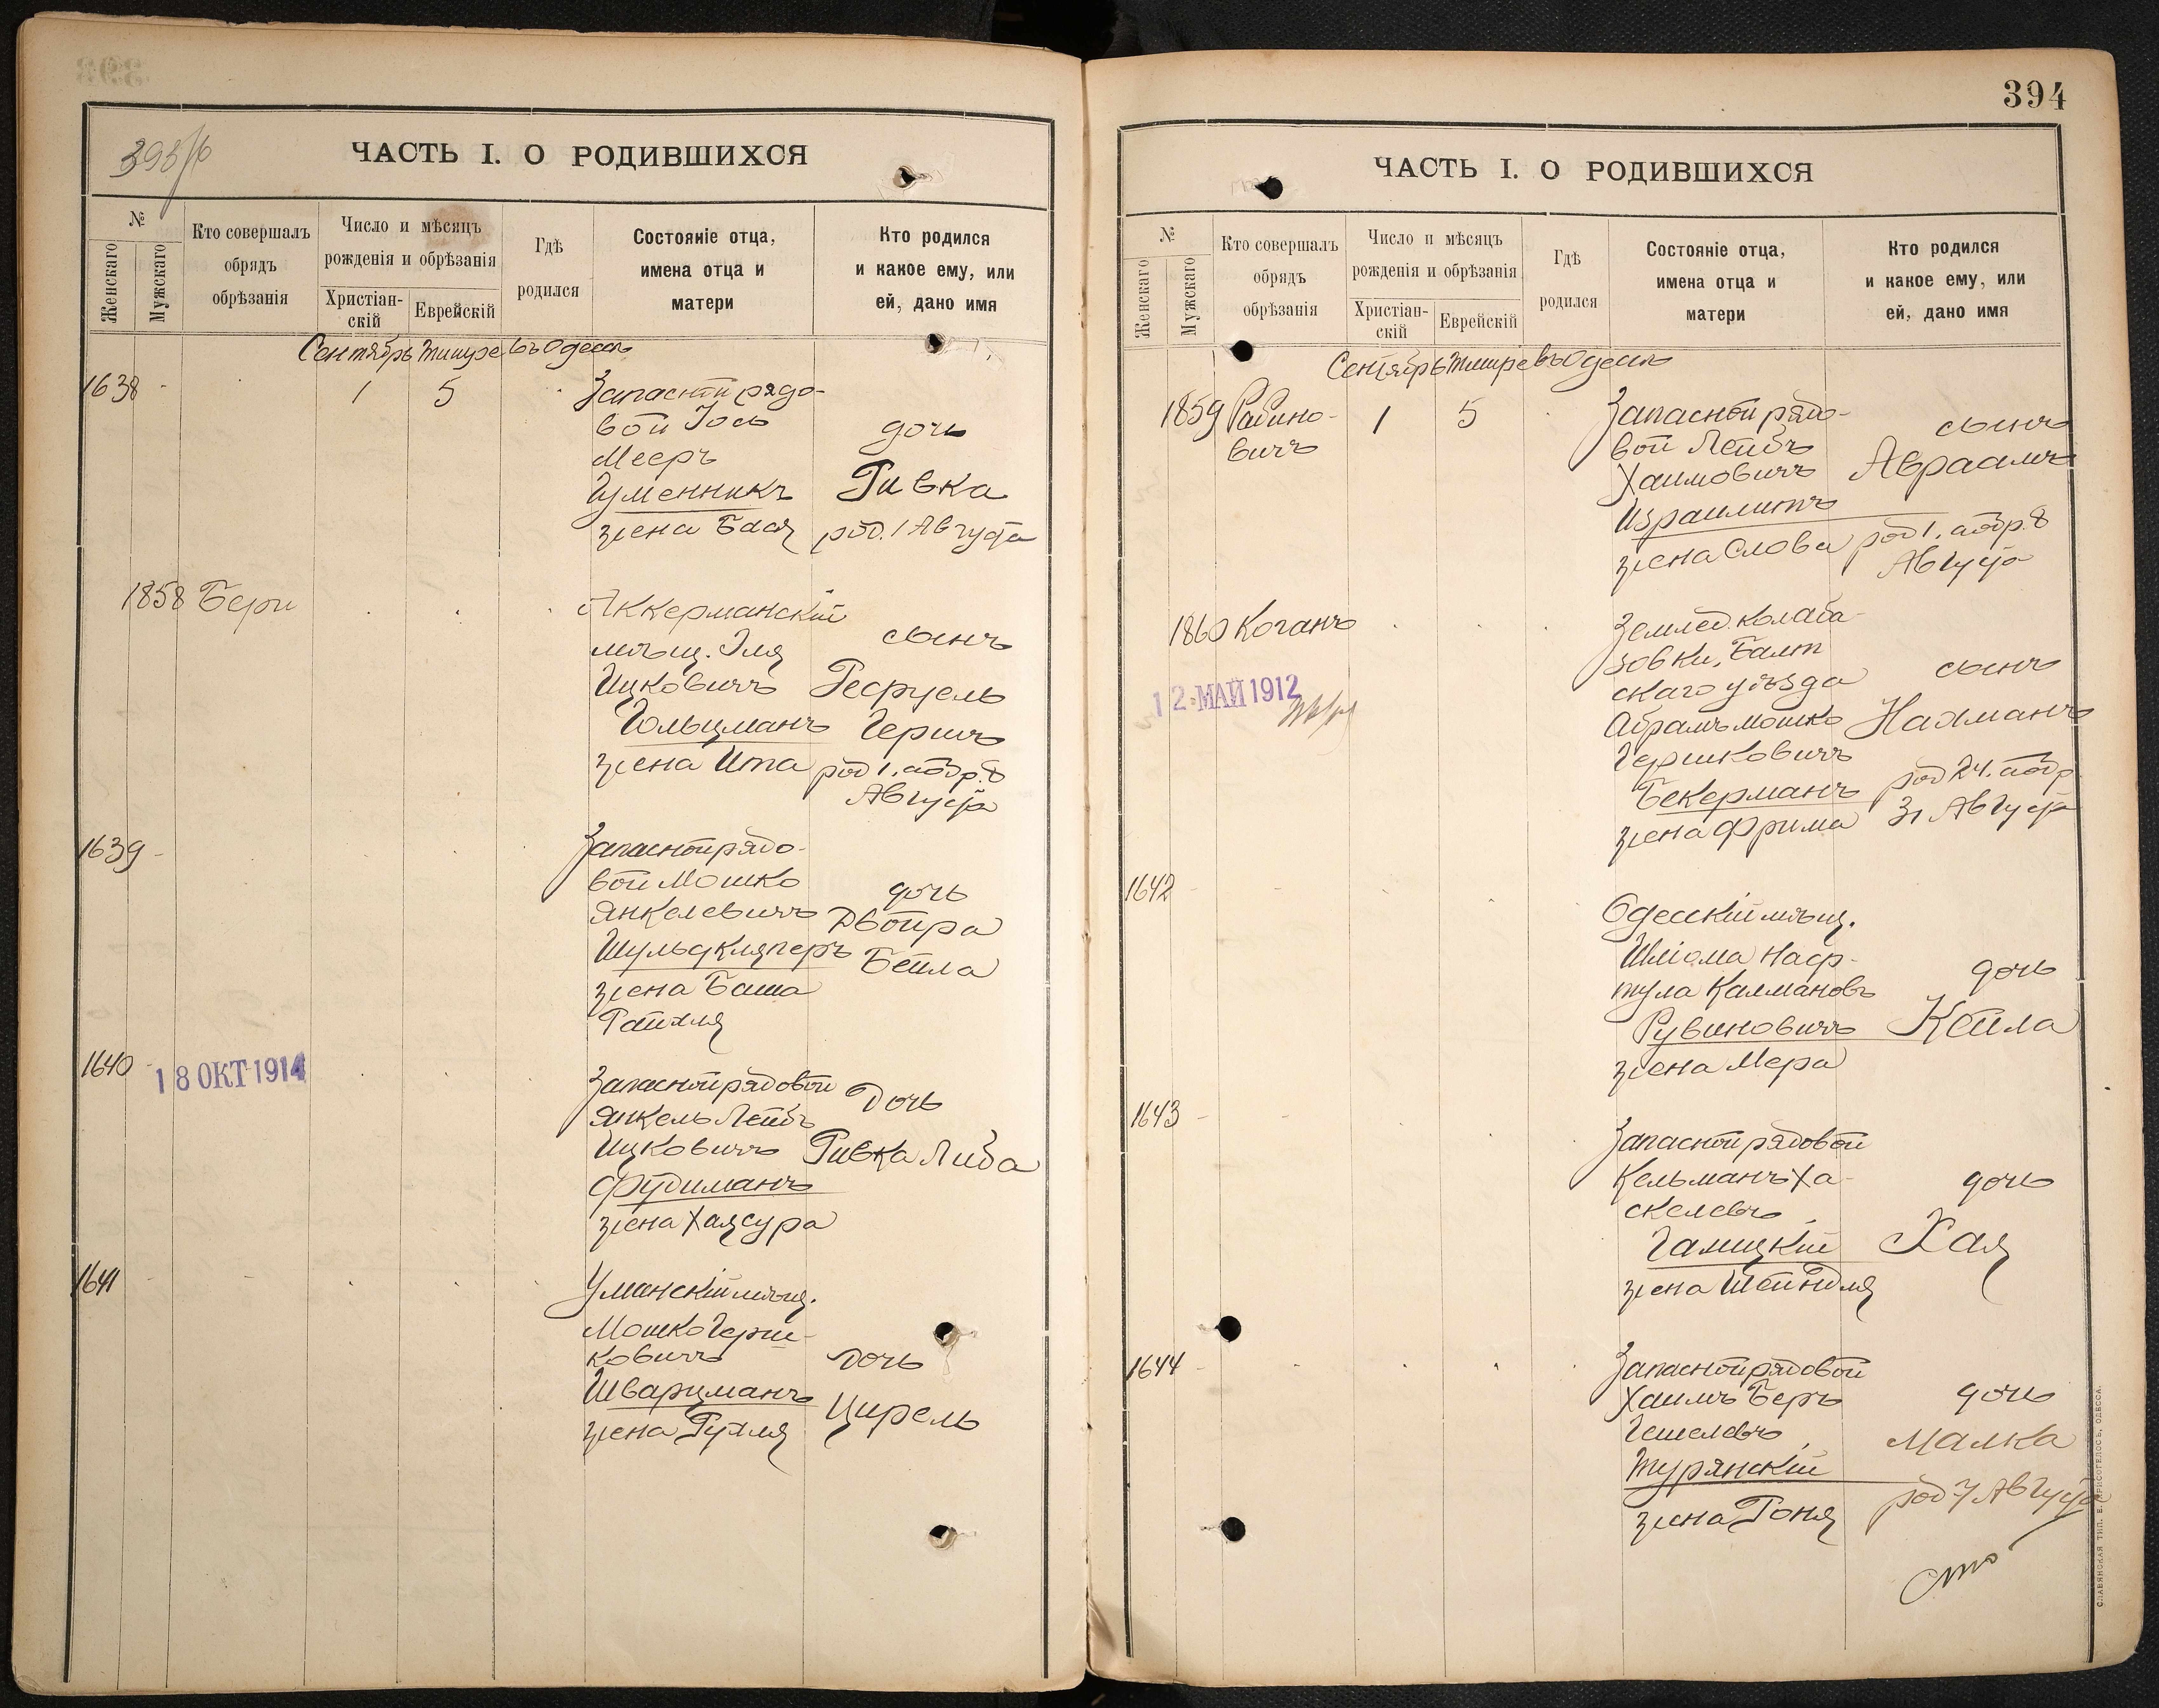 393/б
ЧАСТЬ I. О РОДИВШИХСЯ
№
Женскаго
Мужскаго
Кто совершалъ
обрядъ
обрѣзанія
Число и мѣсяцъ
рожденія и обрѣзанія
Христіан-
скій
Еврейскій
Гдѣ
родился
Состояніе отца,
имена отца и
матери
Кто родился
и какое ему, или
ей, дано имя
Сентябрь Тишре въ Одессѣ
1638
1 5
Запасной рядо-
вой Іось
Мееръ
Гуменникъ
жена Бася
дочь
Ривка
род. 1 Августа
1858 Бери
Аккерманскій
мѣщ. Эля
Ицковичъ
Гольцманъ
жена Ита
сынъ
Герш
род 1. а обр. 8
Августа
1639
Запасной рядо-
вой Мошко
Янкелевичъ
Шульдкляперъ
жена Баша
Райхля
дочь
Двойра
Бейла
1640
18 ОКТ 1914
Запасной рядовой
Янкель Лейбъ
Ицковичъ
Фудиманъ
жена Хая Сура
Дочь
Ривка Либа
1641
Уманскій мѣщ.
Мошко Герш-
ковичъ
Шварцманъ
жена Рухля
дочь
Цирель
394
ЧАСТЬ I. О РОДИВШИХСЯ
№
Женскаго
Мужскаго
Кто совершалъ
обрядъ
обрѣзанія
Число и мѣсяцъ
рожденія и обрѣзанія
Христіан-
скій
Еврейскій
Гдѣ
родился
Состояніе отца,
имена отца и
матери
Кто родился
и какое ему, или
ей, дано имя
Сентябрь Тишре въ Одессѣ
1859 Рабино-
вичъ
1 5
Запасной рядо-
вой Лейбъ
Хаимовичъ
Израилитъ
жена Слова
сынъ
Авраамъ
род 1. а обр. 8
Августа
1860 Коганъ
12 МАЙ 1912
Землед. Колаба-
зовки, Балт
скаго уѣзда
Абрамъ Мошко
Гершковичъ
Бекерманъ
жена Фрима
сынъ
Нахманъ
род 24. а обр
31 Августа
1642
Одесскій мѣщ.
Шліома Наф-
тула Калмановъ
Рувиновичъ
жена Мера
дочь
Кейла
1643
Запасной рядовой
Кельманъ Ха-
скелевъ
Галицкій
жена Шейндля
дочь
Хая
1644
Запасной рядовой
Хаимъ Беръ
Гешелевъ
Турянскій
жена Роня
дочь
Малка
род 7 Августа
СЛАВЯНСКАЯ ТИП. Е. ХРИСОГЕЛОСЪ, ОДЕССА.